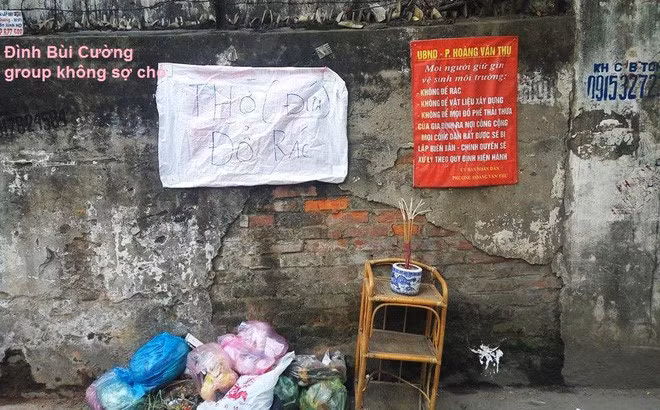 Đình Bùi Cường
group không sợ chợ
THỜ (ĐỨA)
ĐỔ RÁC
UBND - P. HOÀNG VĂN THỤ
Mọi người giữ gìn
vệ sinh môi trường:
- KHÔNG ĐỂ RÁC
- KHÔNG ĐỂ VẬT LIỆU XÂY DỰNG
- KHÔNG ĐỂ MỌI ĐỒ PHẾ THẢI THỪA
CỦA GIA ĐÌNH RA NƠI CÔNG CỘNG
MỌI CÔNG DÂN BẮT ĐƯỢC SẼ BỊ
LẬP BIÊN BẢN - CHÍNH QUYỀN SẼ
XỬ LÝ THEO QUY ĐỊNH HIỆN HÀNH
ỦY BAN NHÂN DÂN
PHƯỜNG HOÀNG VĂN THỤ
KH C B TÔ
09153272